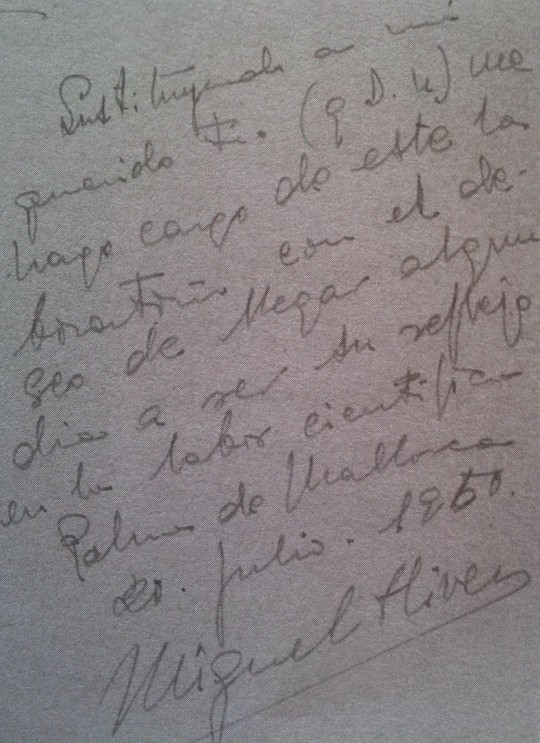 Sustituyendo a mi
querido F. (q D. h) me
hago cargo de este la
boratorio con el de-
seo de llegar algun
dia a ser su reflejo
en la labor científica
Palma de Mallorca
20. julio. 1950.
Miguel